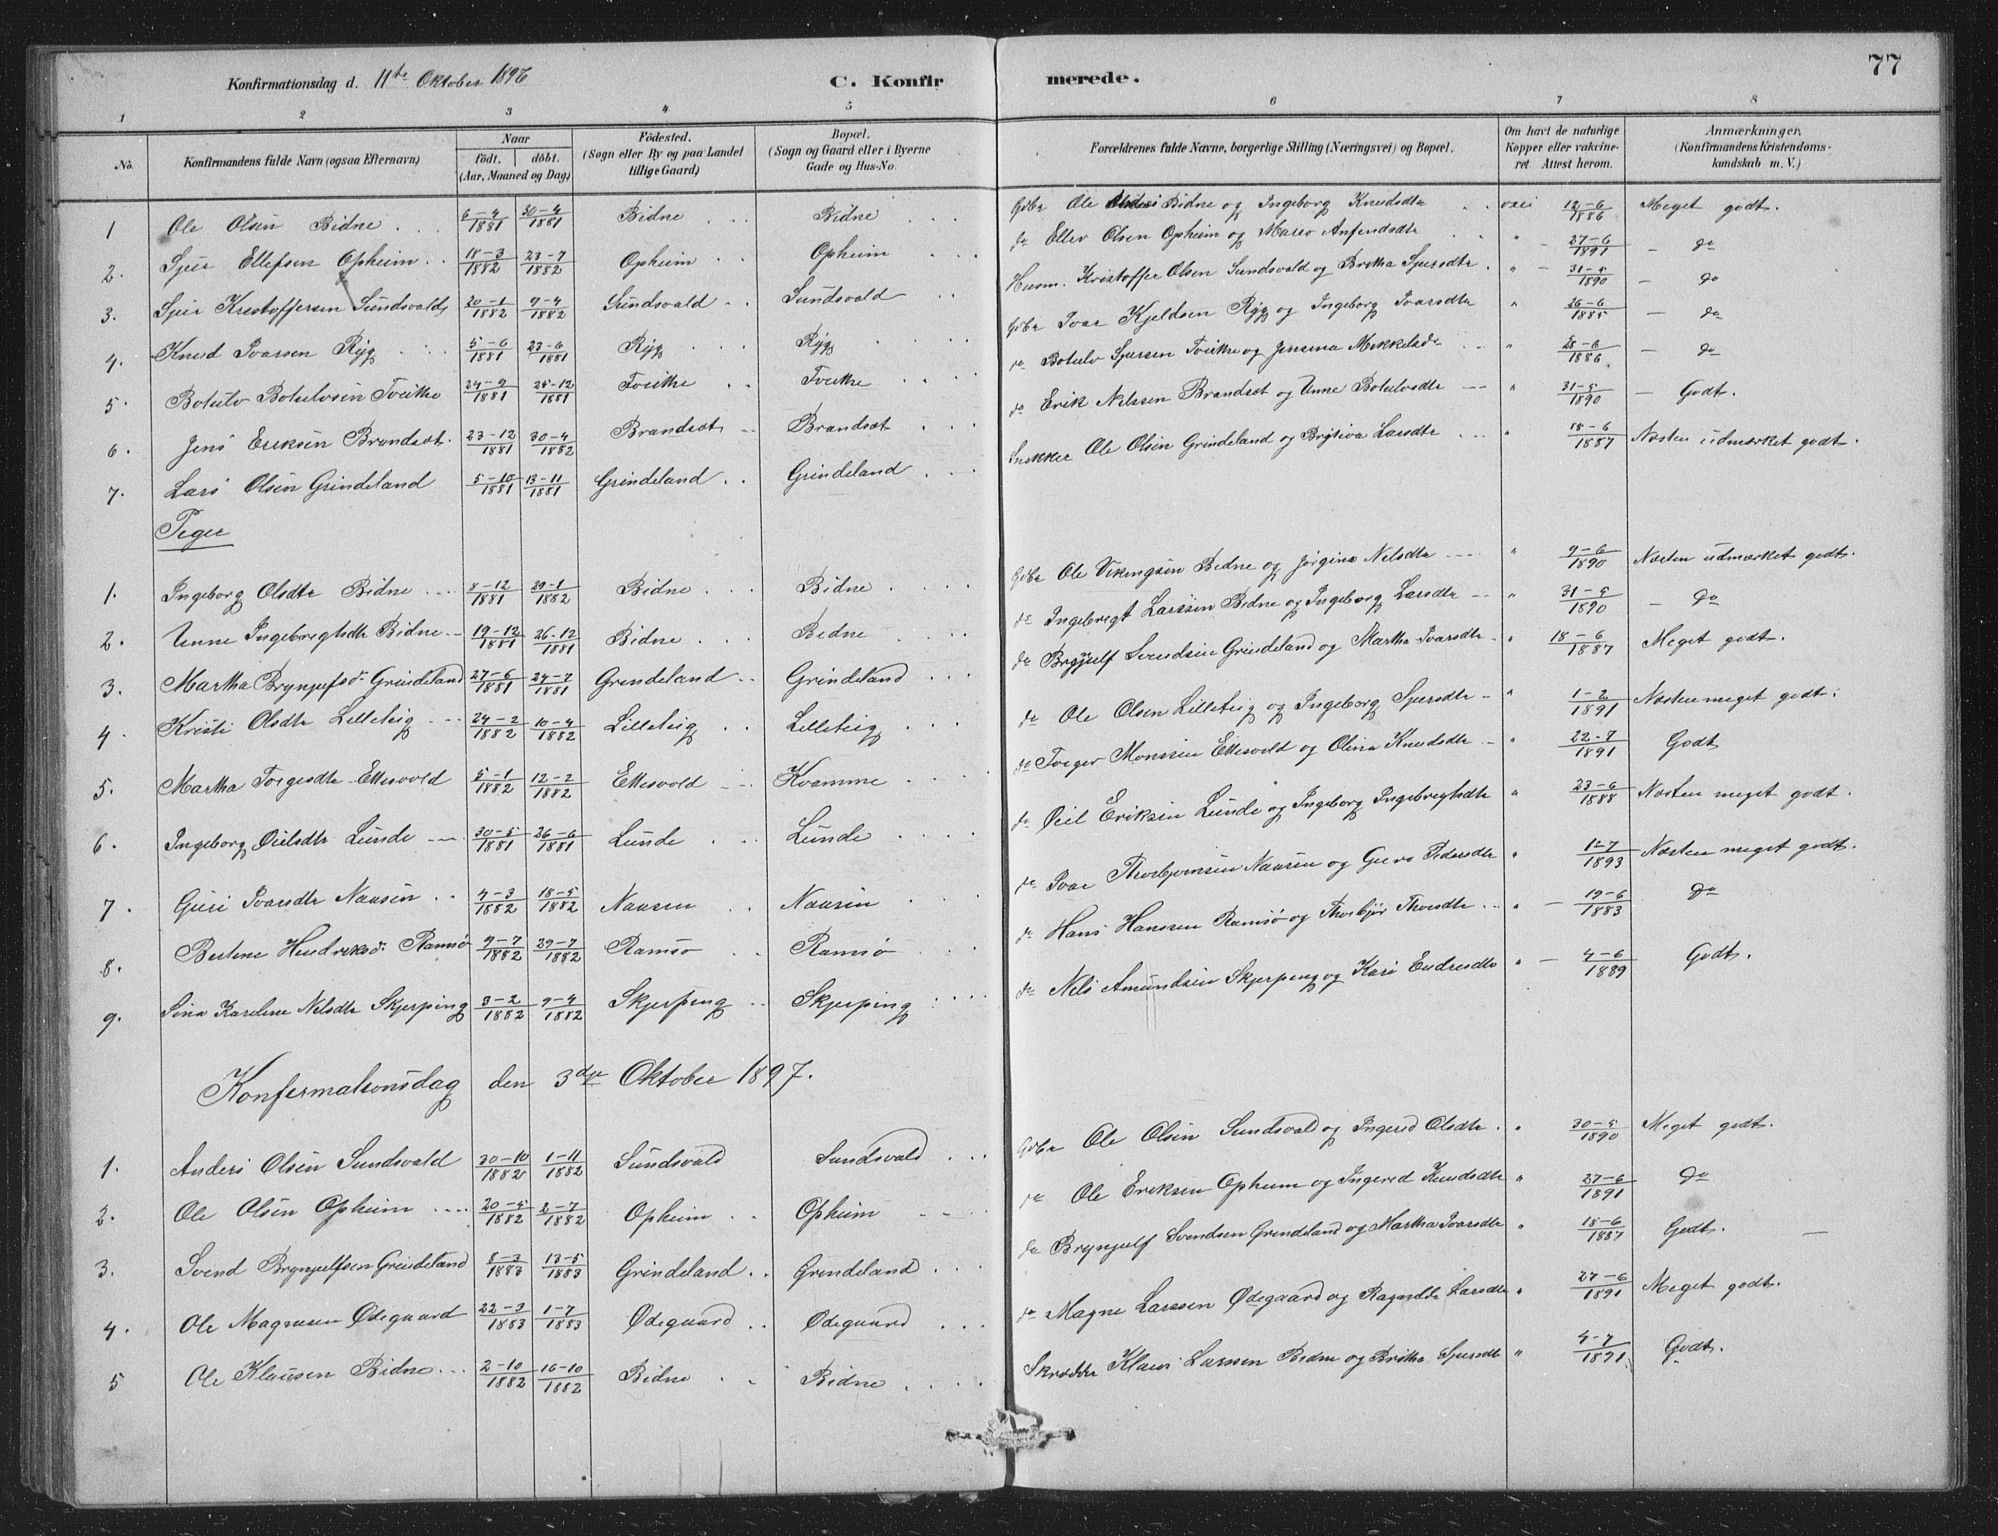 77
Konfirmationsdag d. 11te Oktober 1896 C. Konfirmerede.
1 2 3 4 5 6 7 8
No. Konfirmandens fulde Navn (ogsaa Efternavn) Naar födt. döbt. (Aar, Maaned og Dag) Födested. (Sogn eller By og paa Landet tillige Gaard) Bopæl. (Sogn og Gaard eller i Byerne Gade og Hus-No. Forældrenes fulde Navne, borgerlige Stilling (Næringsvei) og Bopæl. Om havt de naturlige Kopper eller vakcineret. Attest herom. Anmærkninger. (Konfirmandens Kristendomskundskab m. V.)
1 Ole Olsen Bidne 6-4 1881 30-4 1881 Bidne Bidne Gdbr Ole Bidne og Ingeborg Knudsdtr 12-6 1886 Meget godt.
2. Sjur Ellefsen Opheim 18-3 1882 23-7 1882 Opheim Opheim do Ellev Olsen Opheim og Anfendsdtr " 27-6 1891 — do
3. Sjur Kristoffersen Sundsvald 20-1 1882 9-4 1882 Sundsvald Sundsvald Husm. Kristoffer Olsen Sundsvald og Britha Sjursdtr " 31-5 1890 — do
4. Knud Ivarsen Ryg 5-6 1881 23-6 1881 Ryg Ryg Gdbr Ivar Kjeldsen Ryg og Ingeborg Ivarsdtr " 26-6 1885 — do
5. Botulv Botulvsen Tveithe 24-9 1881 25-12 1881 Tveithe Tveithe do Botulv Sjursen Tveithe og Jensina Mikkelsdr " 28-6 1886 — do
6. Jens Eriksen Brandset 23-12 1881 30-4 1882 Brandset Brandset do Erik Nilssen Brandset og Unne Botulvsdtr " 31-5 1890 — Godt.
7. Lars Olsen Grindeland 5-10 1881 13-11 1881 Grindeland Grindeland Snekker Ole Olsen Grindeland og Brytiva Larsdtr " 18-6 1887 Næsten udmærket godt.
Piger
1. Ingeborg Olsdtr Bidne 8-12 1881 29-1 1882 Bidne Bidne Gdbr Ole Vikingsen Bidne og Jørgina Nelsdtr " 9-6 1890 Næsten udmærket godt.
2. Unne Ingebregtsdtr Bidne 19-12 1881 26-12 1881 Bidne Bidne do Ingebregt Larssen Bidne og Ingeborg Larsdtr " 31-5 1890 — do
3. Martha Brynjufsdr Grindeland 27-6 1881 24-7 1881 Grendeland Grindeland do Brynjulf Svendsen Grindeland og Martha Ivarsdtr " 18-6 1887 Meget godt.
4. Kristi Olsdtr Lilleteig 24-2 1882 10-4 1882 Lilleteig Lilleteig do Ole Olsen Lilleteig og Ingeborg Sjursdtr " 1-2 1891 Næsten meget godt.
5. Martha Torgesdtr Ettesvold 5-1 1882 12-2 1882 Ettesvold Kvamme do Torger Monssen Ettesvold og Olina Knudsdtr " 22-7 1891 Godt
6. Ingeborg Øielsdtr Lunde 30-5 1881 26-6 1881 Lunde Lunde do Øiel Eriksen Lunde og Ingeborg Ingebregtsdtr " 23-6 1888 Næsten meget godt.
7. Guri Ivarsdtr Naasen 4-3 1882 18-5 1882 Naasen Naasen do Ivar Thorbjørnsen Naasen og Guro Pedersdtr " 1-7 1893 Næsten meget godt.
8. Bertine Hendriksdr Ramsø 9-7 1882 29-7 1882 Ramsø Ramsø do Hans Hanssen Ramsø og Thorbjør Thorsdtr " 19-6 1883 do
9. Sina Karoline Nelsdtr Skjerping 3-2 1882 9-4 1882 Skjerping Skjerping do Nels Amundsen Skjerpeng og Kari Endresdtr " 4-6 1889 Godt.
Konfermationsdag den 3die Oktober 1897.
1. Anders Olsen Sundsvald 30-10 1882 1-11 1882 Sundsvald Sundsvald Gdbr Ole Olsen Sundsvald og Ingered Olsdtr " 30-5 1890 Meget godt.
2. Ole Olsen Opheim 20-5 1882 2-7 1882 Opheim Opheim do Ole Eriksen Opheim og Ingered Knudsdtr " 27-6 1891 do
3. Svend Brynjulfsen Grindeland 8-3 1883 13-5 1883 Grindeland Grendeland do Brynjulf Svendsen Grendeland og Martha Ivarsdtr " 18-6 1887 Godt.
4. Ole Magnusen Ødegaard 22-3 1883 1-7 1883 Ødegaard Ødegaard do Magne Larssen Ødegaard og Ragnilde Larsdtr " 27-6 1891 Meget godt.
5 Ole Klausen Bidne 2-10 1882 16-10 1882 Bidne Bidne Skrædder Klaus Larssen Bidne og Britha Sjursdtr " 4-7 1891 Godt.